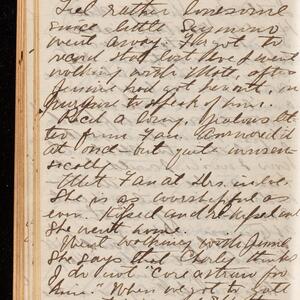 Feel rather lonesome
since little Seymour
went away. Forgot to
record that last eve I went
walking with Mote, after
Jennie had got her oath, on
purpose to speak of him.
Rec'd a long, jealous let-
ter from Fan. Answered it
at once - but quite
Met Fan at Mrs.
She is as worshipful as
ever. Kissed and
she went home.
Went walking with Jennie
She says that Charley thinks
I do not "Care a straw for
him." When we got to